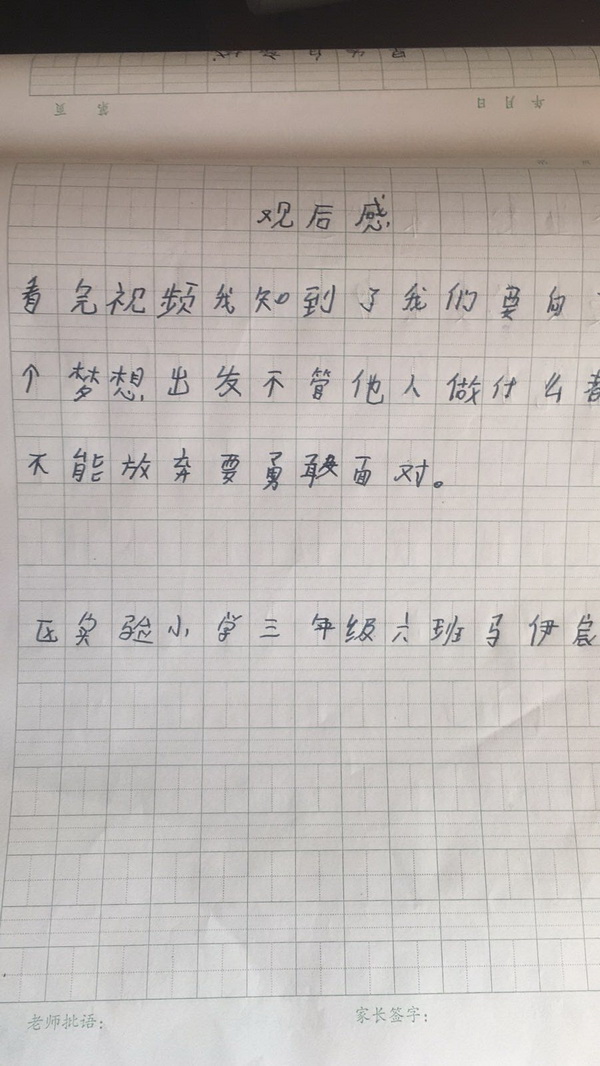 第 页 年 月 日
观后感
看完视频我知到了我们要向
个梦想出发不管他人做什么都
不能放弃要勇敢面对。
区实验小学三年级六班马伊宸
老师批语: 家长签字: